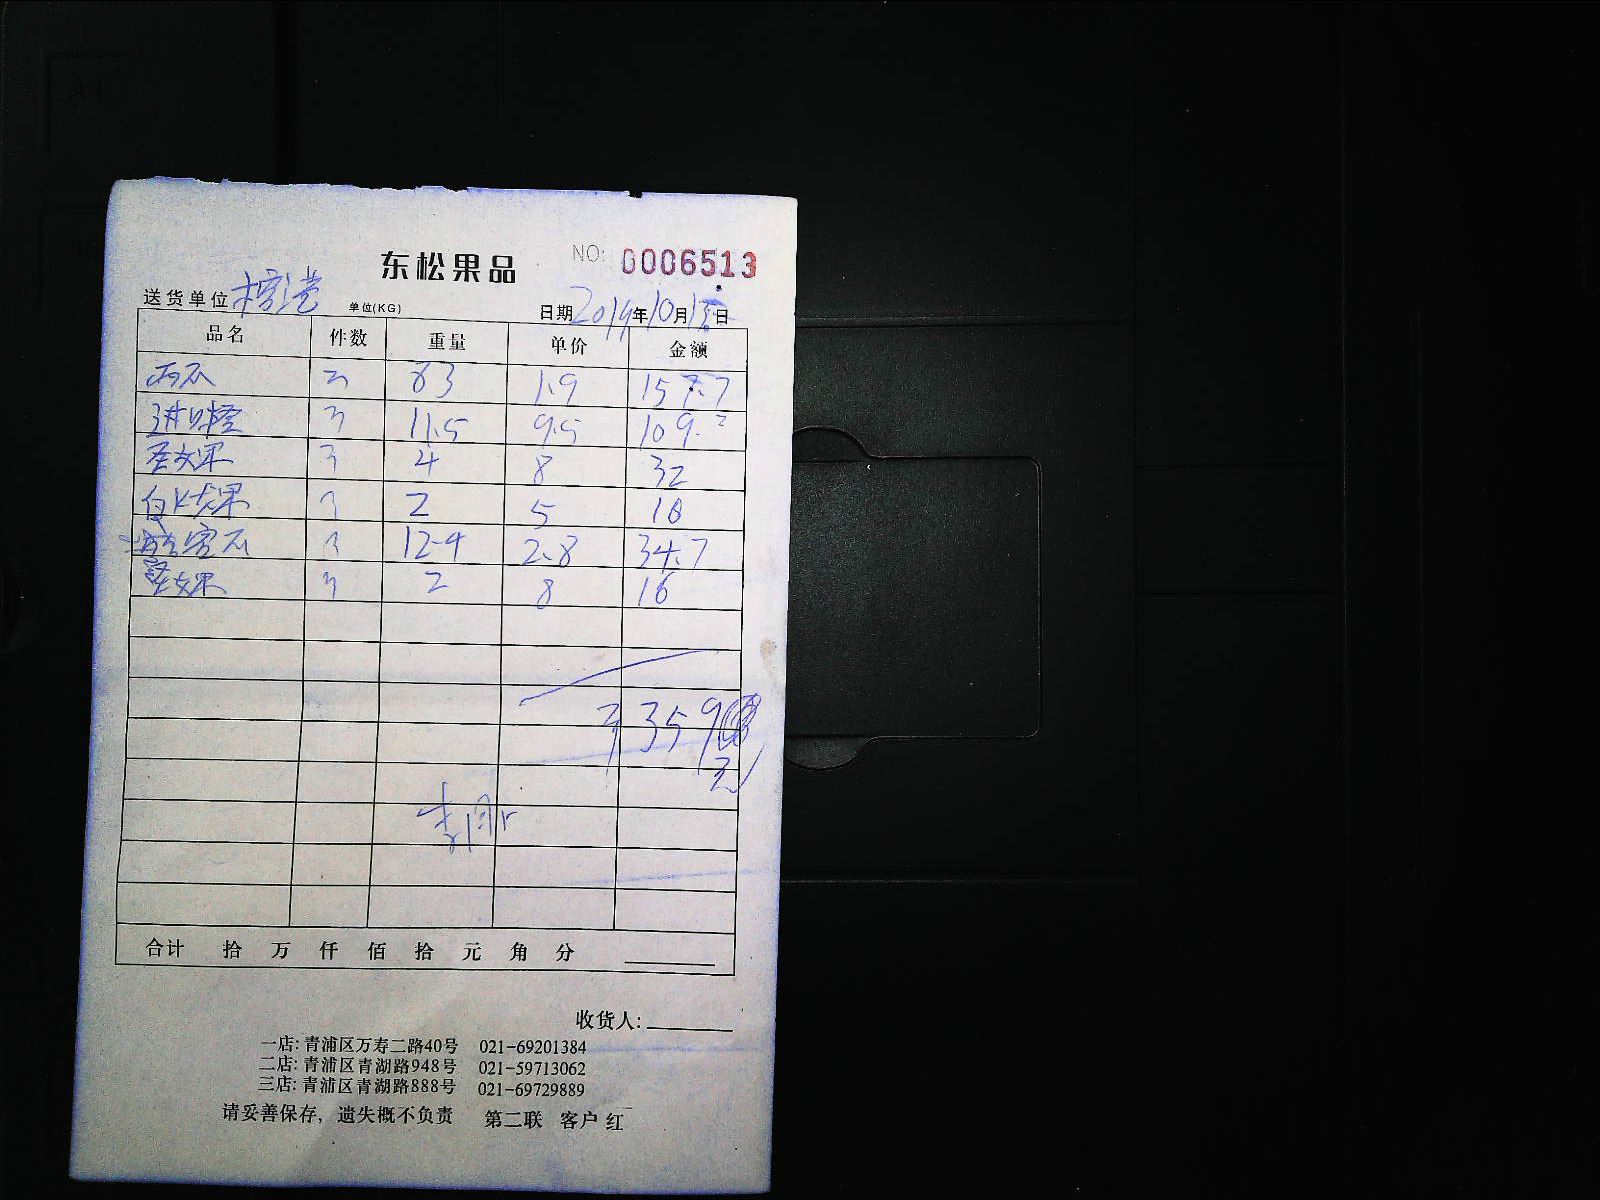 东松果品 NO: 0006513
送货单位 单位(KG) 日期 2019年10月13日
品名 件数 重量 单价 金额
西瓜 83 1.9 157.7
进口橙 11.5 9.5 109.2
圣女果 4 8 32
白火龙果 2 5 10
蜜瓜 12.4 2.8 34.7
圣女果 2 8 16
359
元
合计 拾 万 仟 佰 拾 元 角 分
收货人:
一店: 青浦区万寿二路40号 021-69201384
二店: 青浦区青湖路948号 021-59713062
三店: 青浦区青湖路888号 021-69729889
请妥善保存, 遗失概不负责 第二联 客户 红